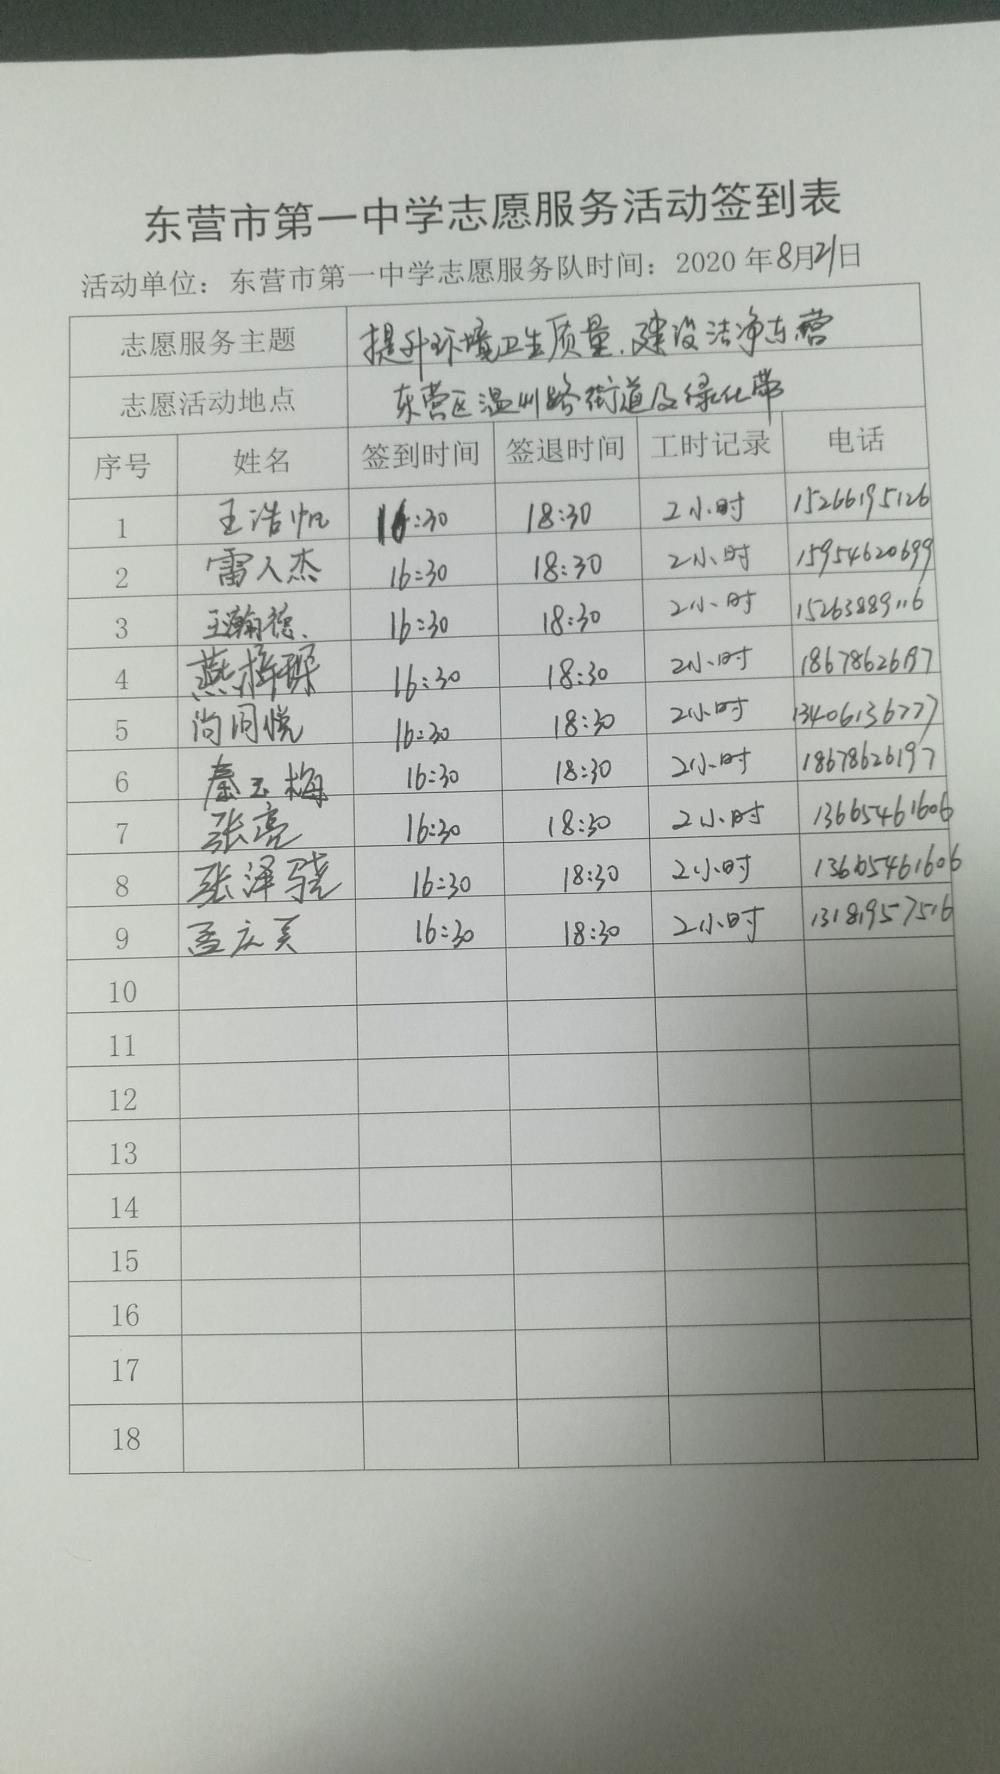 东营市第一中学志愿服务活动签到表
活动单位：东营市第一中学志愿服务队时间：2020年8月21日
志愿服务主题 提升环境卫生质量、建设洁净东营
志愿活动地点 东营区温州路街道及绿化带
序号 姓名 签到时间 签退时间 工时记录 电话
1 王浩帆 16:30 18:30 2小时 15266195126
2 雷人杰 16:30 18:30 2小时 15954620699
3 王瀚德 16:30 18:30 2小时 15263889116
4 16:30 18:30 2小时 18678626197
5 尚同悦 16:30 18:30 2小时 13406136777
6 秦玉梅 16:30 18:30 2小时 18678626197
7 张亮 16:30 18:30 2小时 13665461606
8 张泽骁 16:30 18:30 2小时 13665461606
9 孟庆美 16:30 18:30 2小时 13181957516
10
11
12
13
14
15
16
17
18